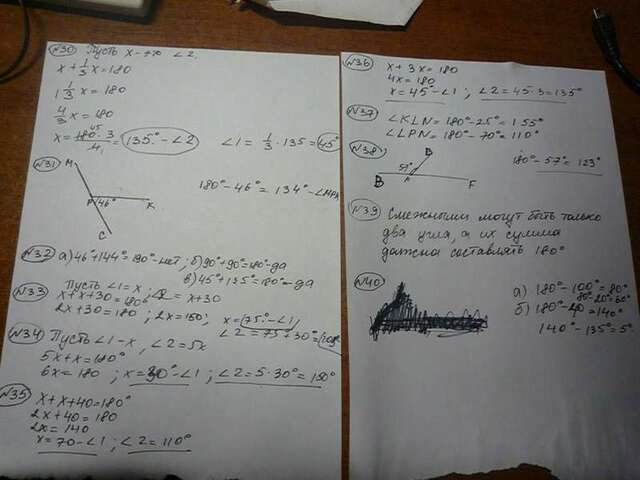 №30 Пусть x – это ∠2.
x + 1/3 x = 180
1 1/3 x = 180
4/3 x = 180
x = 180·3/4 = 135° - ∠2 ∠1 = 1/3 · 135 = 45°
№31
M
A 46° K
C
180° - 46° = 134° - ∠MAK
№32 а) 46°+144° 190°-нет; б) 90°+90°=180°-да
в) 45°+135°=180°-да
№33 Пусть ∠1 = x; ∠2 = x+30
x + x + 30 = 180
2x + 30 = 180; 2x = 150; x = 75° - ∠1
∠2 = 75 + 30 = 105°
№34 Пусть ∠1 - x, ∠2 = 5x
5x + x = 180°
6x = 180; x = 30° - ∠1; ∠2 = 5·30° = 150°
№35 x + x + 40 = 180°
2x + 40 = 180
2x = 140
x = 70 - ∠1; ∠2 = 110°
№36 x + 3x = 180
4x = 180
x = 45° - ∠1; ∠2 = 45·3 = 135°
№37 ∠KLN = 180° - 25° = 155°
∠LPN = 180° - 70° = 110°
№38
57°
A F
B
180° - 57° = 123°
№39 Смежными могут быть только
два угла, а их сумма
должна составлять 180°
№40
а) 180° - 100° = 80°
80°-20°=60°
б) 180° - 40 = 140°
140° - 135° = 5°